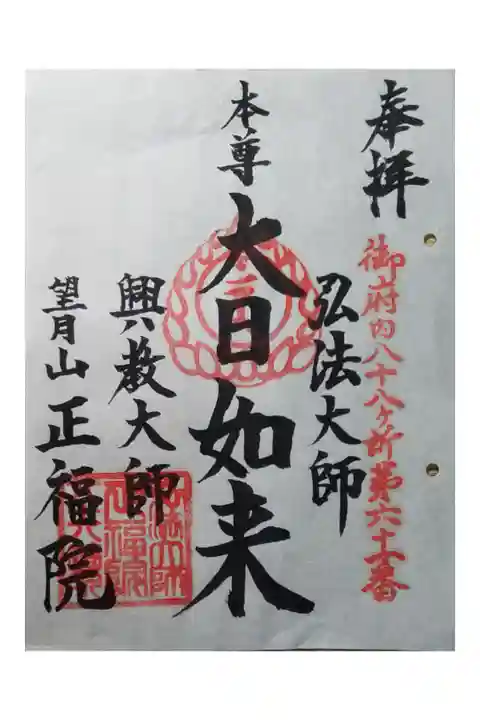 奉拝
御府内八十八ヶ所第六十一番
弘法大師
本尊
大日如来
興教大師
望月山 正福院